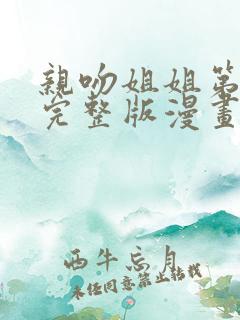 親吻姐姐第
完整版漫畫
西牛忘月
未任同意禁止転载